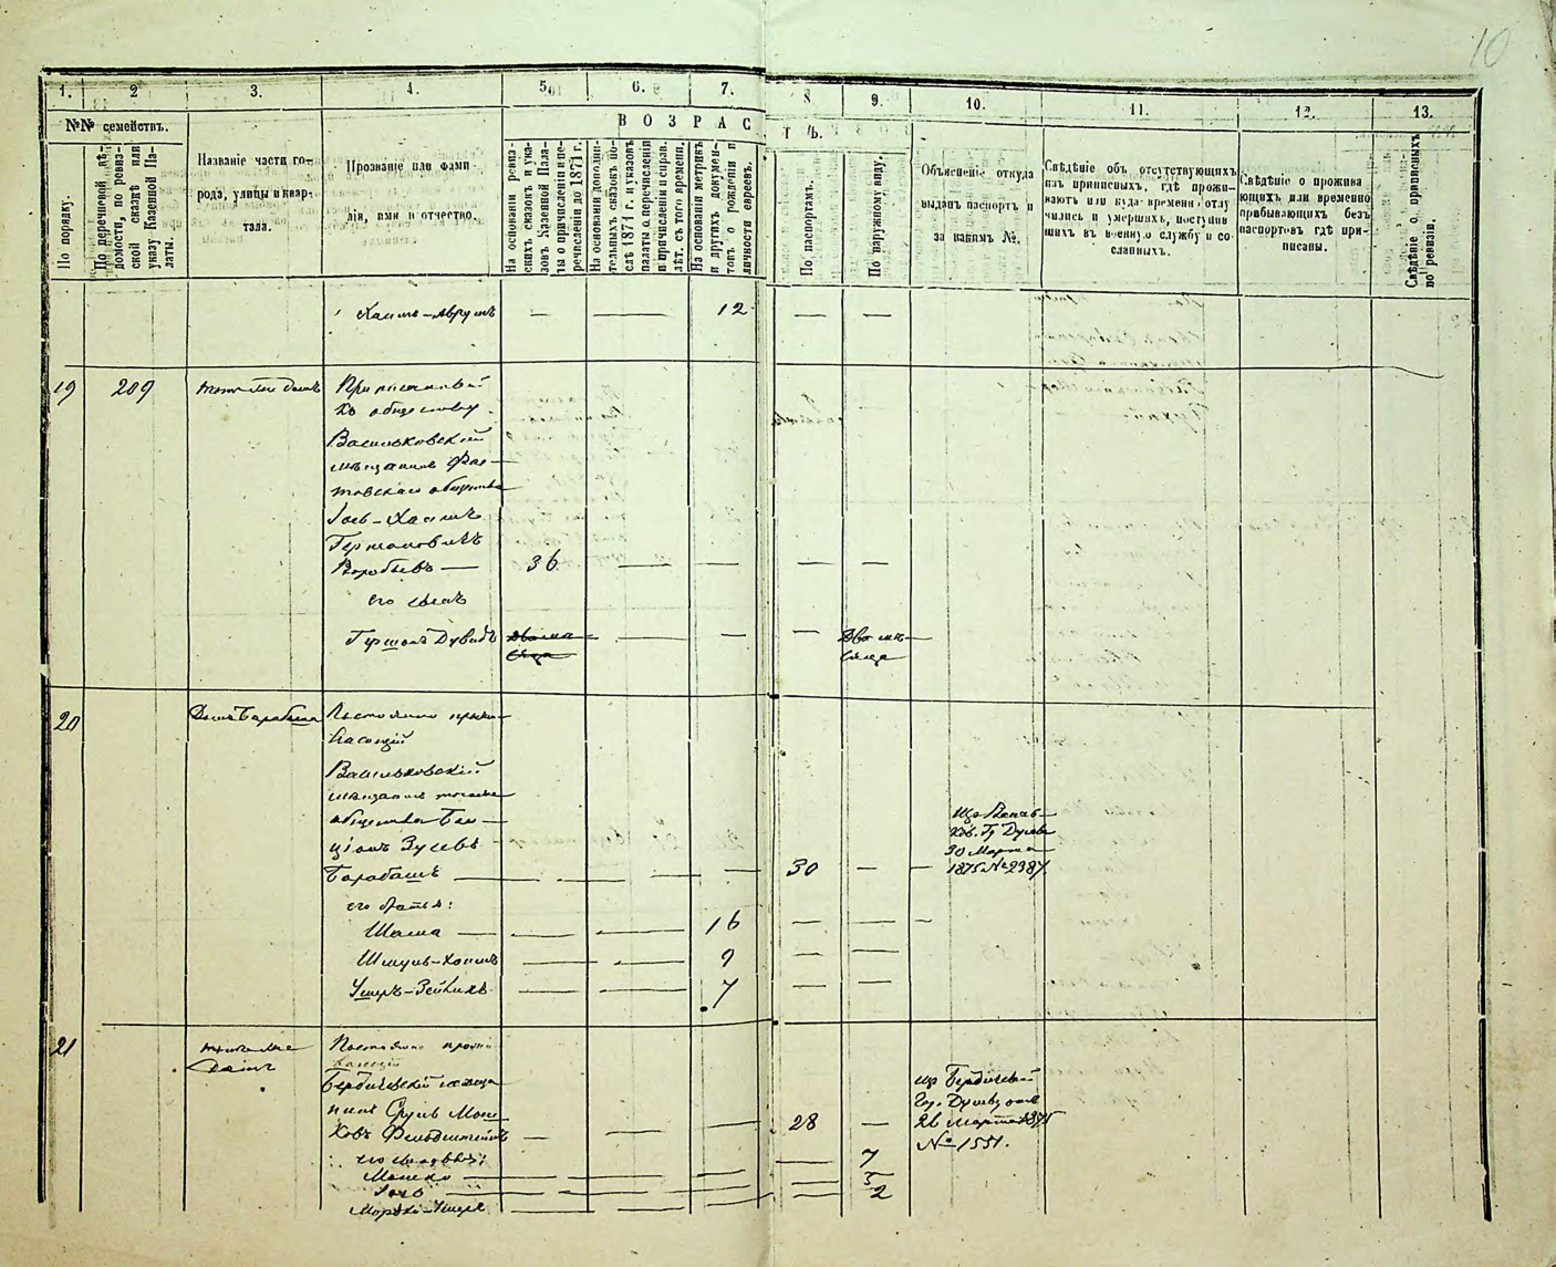 10
1. 2 3. 4. 5. 6. 7. 8 9. 10. 11. 12. 13.
№№ семействъ.
По порядку.
По перечневой вѣ-
домости, по ревиз-
ской сказкѣ или
указу Казенной Па-
латы.
Названіе части го-
рода, улицы и квар-
тала.
Прозваніе или фами-
лія, имя и отчество.
ВОЗРАСТЪ.
На основаніи ревиз-
скихъ сказокъ и ука-
зовъ Казенной Пала-
ты о причисленіи и пе-
речисленіи до 1871 г.
На основаніи дополни-
тельныхъ сказокъ по-
слѣ 1871 г. и указовъ
палаты о перечисленіи
и причисленіи и справ.
лѣт. съ того времени.
На основаніи метрикъ
и другихъ докумен-
товъ о рожденіи и
личности евреевъ.
По паспортамъ.
По наружному виду.
Объясненіе откуда
выданъ паспортъ и
за какимъ №.
Свѣдѣніе объ отсутствующихъ
изъ приписныхъ, гдѣ прожи-
ваютъ или куда времени отлу
чились и умершихъ, поступив
шихъ въ военную службу и со-
сланныхъ.
Свѣдѣніе о прожива
ющихъ или временно
прибывающихъ безъ
паспортовъ гдѣ при-
писаны.
Свѣдѣніе о приписныхъ
по ревизіи.
Хаимъ-Аврумъ — — 12 — —
19 209
Приписанный
къ обществу
Васильковскій
мѣщанинъ Фас-
товскаго общества
Гершковичъ
Воробьевъ — 36 — — — —
его сынъ
Гершонъ Дувидъ — — — Два мѣ-
сяца
20 Домъ Барабаша Постоянно прожи-
вающій
Васильковскій
мѣщанинъ
общества Бен-
ціонъ Зусевъ
Барабашъ — — — — 30 — —
Изъ Василь-
ков. Гр Думы
30 Марта
1875 № 2387
его братья:
Шома — — — 16 — — —
Шмуль-Хаимъ — — 9 — —
Ушеръ-Зейликъ — — 7 — —
21 Постоянно прожи
вающій
Домъ
Бердичевскій мѣща
нинъ Сруль Мош
ковъ — — — 28 —
изъ Бердичев
Гор. Думы отъ
26 марта 1875
№ 1551.
его сыновья: 7
Мошко — — — — 5
— — — — 2
Мордко-Ушеръ — — —